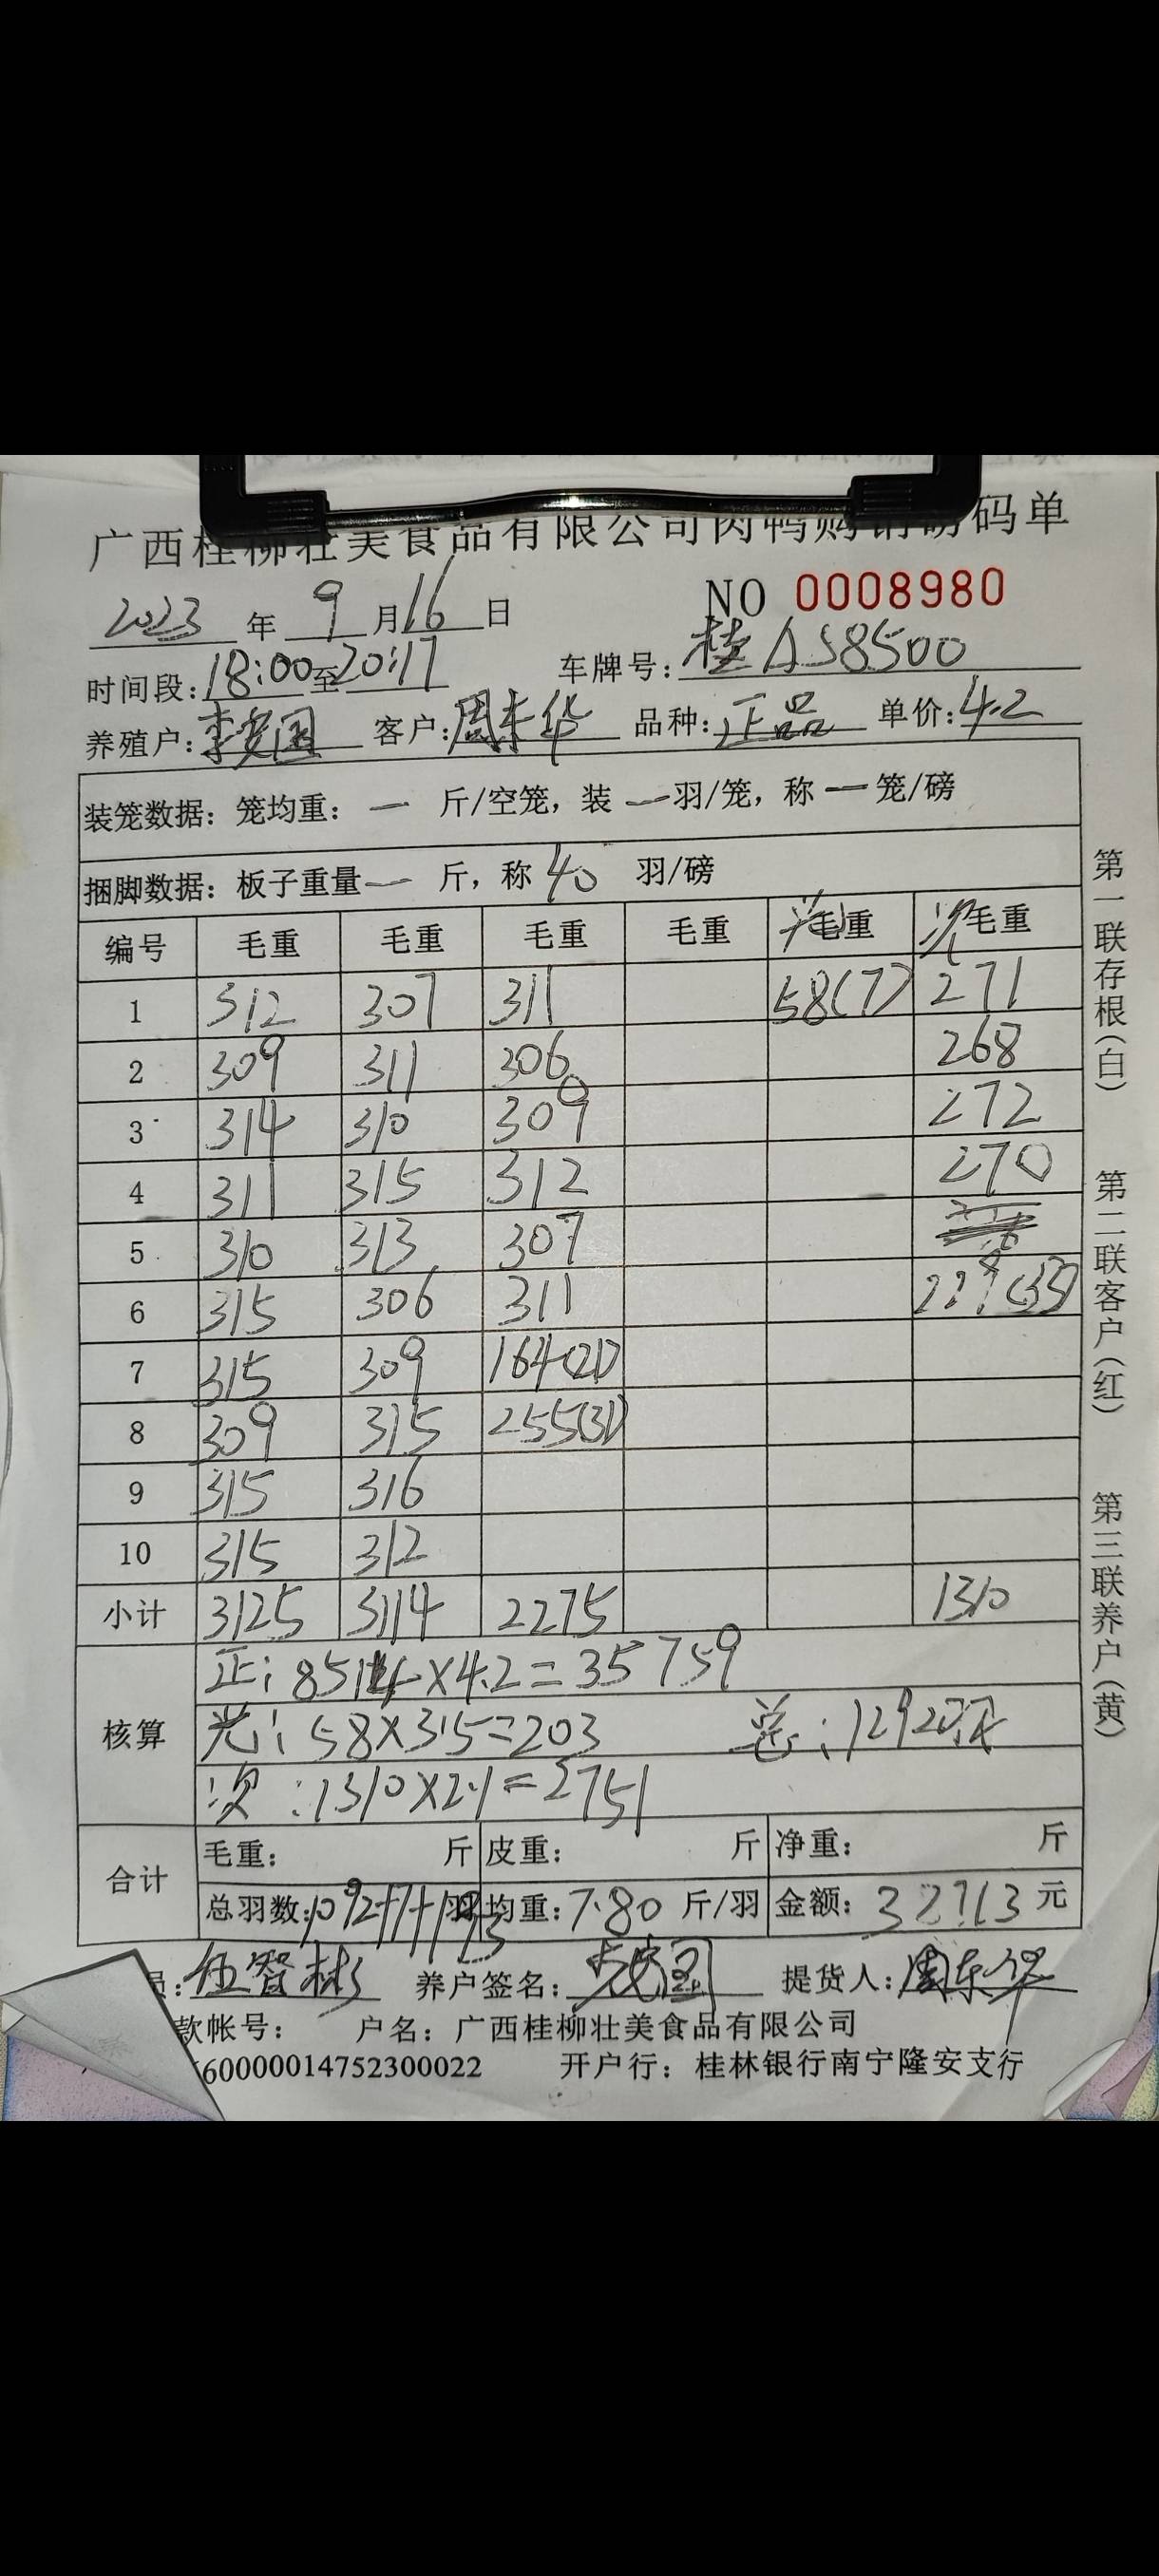 广西桂柳壮美食品有限公司肉鸭购销磅码单
2023 年 9 月 16 日 NO 0008980
时间段: 18:00 至 20:17 车牌号: 桂AS8500
养殖户: 李安国 客户: 周东华 品种: 正品 单价: 4.2
装笼数据: 笼均重: — 斤/空笼, 装 — 羽/笼, 称 — 笼/磅
捆脚数据: 板子重量 — 斤, 称 40 羽/磅
编号 毛重 毛重 毛重 毛重 光毛重 次毛重
1 312 307 311 58(7) 271
2 309 311 306 268
3 314 310 309 272
4 311 315 312 270
5 310 313 307
6 315 306 311 229(35)
7 315 309 164(21)
8 309 315 255(31)
9 315 316
10 315 312
小计 3125 3114 2275 1310
核算
正: 8514×4.2=35759
光: 58×3.5=203 总: 1292羽
次: 1310×2.1=2751
合计
毛重: 斤 皮重: 斤 净重: 斤
总羽数: 1092+7+193 羽 均重: 7.80 斤/羽 金额: 38713 元
员: 伍智彬 养户签名: 李安国 提货人: 周东华
款帐号: 户名: 广西桂柳壮美食品有限公司
660000014752300022 开户行: 桂林银行南宁隆安支行
第一联存根(白)
第二联客户(红)
第三联养户(黄)